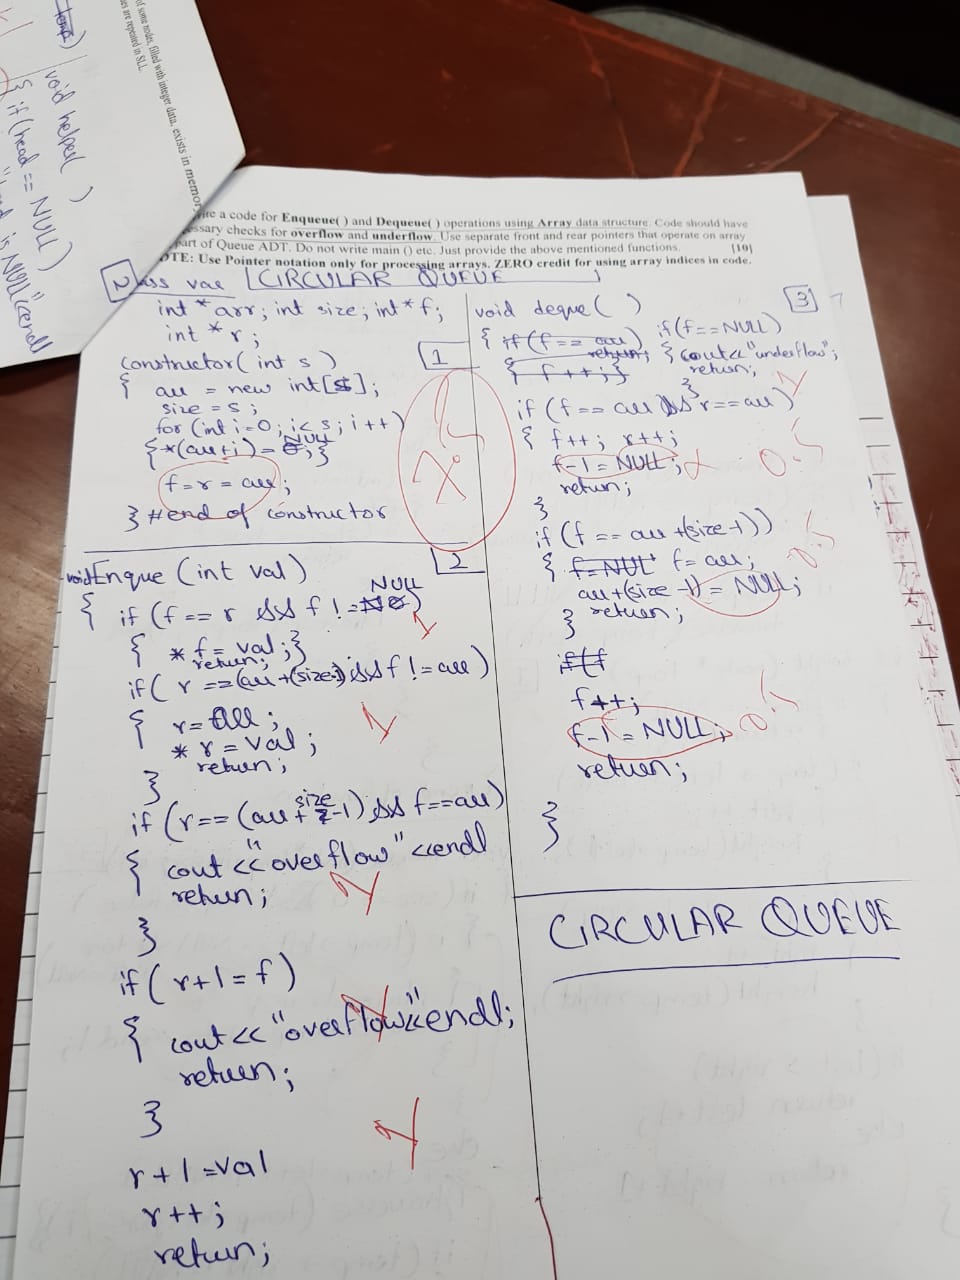 temp)
void helper( )
{ if (head == NULL)
is NULL"<<endl
of some nodes, filled with integer data, exists in memor
es are repeated in SLL.
ite a code for Enqueue( ) and Dequeue( ) operations using Array data structure. Code should have
essary checks for overflow and underflow. Use separate front and rear pointers that operate on array
part of Queue ADT. Do not write main () etc. Just provide the above mentioned functions. [10]
OTE: Use Pointer notation only for processing arrays. ZERO credit for using array indices in code.
2
ss var CIRCULAR QUEUE
int *arr; int size; int *f;
int *r;
1
constructor( int s )
{ arr = new int[s];
size = s;
for (int i=0; i<s; i++)
{ *(arr+i) = NULL; }
f = r = arr;
} #end of constructor
2
void Enque (int val)
{ if (f == r && f != NULL)
{ *f = val; }
return;
if( r == (arr+(size-1) && f != arr)
{ r = arr;
* r = val;
return;
}
if (r == (arr + size-1) && f==arr)
{ cout << "overflow" <<endl
return;
}
if ( r+1 = f )
{ cout << "overflow"<<endl;
return;
}
r + 1 = val
r++;
return;
3
void deque( )
{ if (f == arr)
return;
{ f++; }
if (f == NULL)
{ cout<<"underflow";
return;
}
if (f == arr && r == arr)
{ f++; r++;
f-1 = NULL;
return;
0.5
}
if (f == arr +(size-1))
{ f=NUL f = arr;
arr+(size-1) = NULL;
return;
0.5
}
if(f
f++;
f-1 = NULL;
0.5
return;
}
CIRCULAR QUEUE